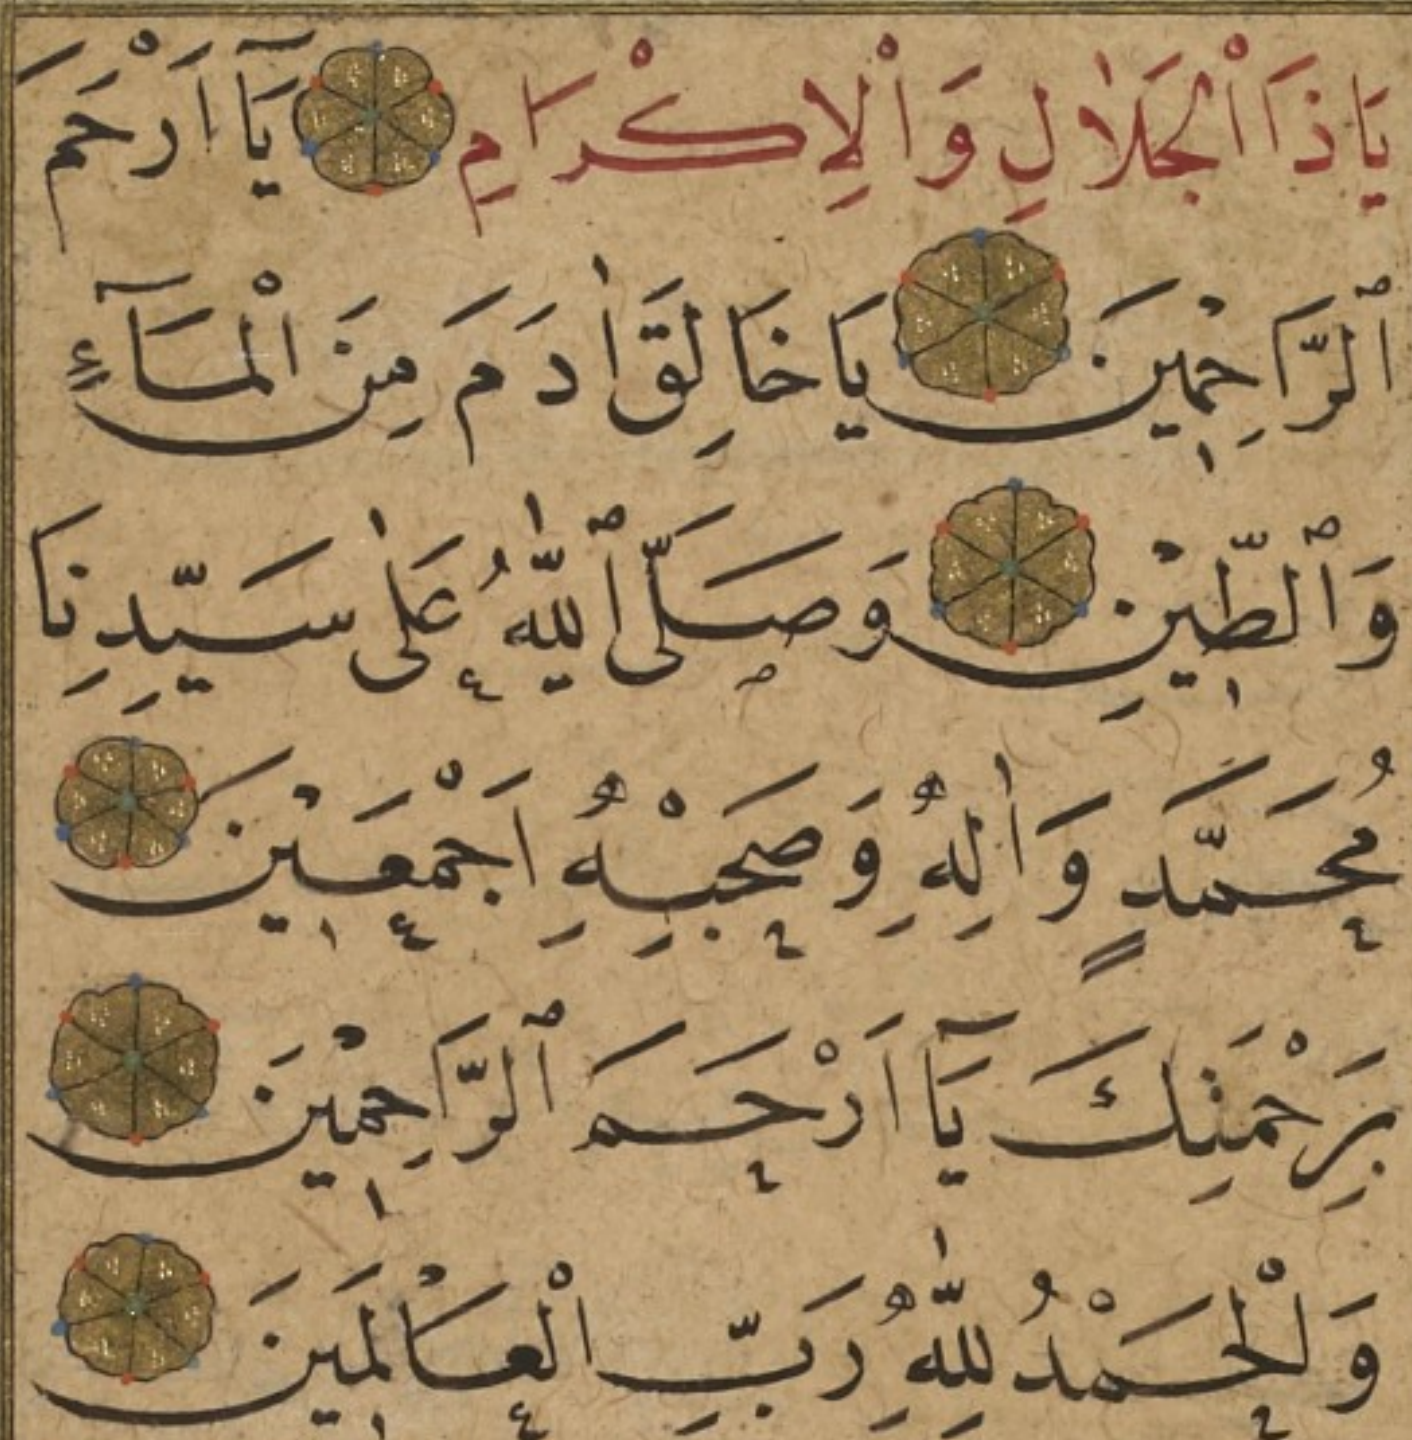 يَا ذَا اْلجَلَالِ وَاْلاِكْرَامِ يَٓا اَرْحَمَ
ٱلرَّاحِمِينَ يَا خَالِقَ اٰدَمَ مِنَ اْلمَٓاءِ
وَٱلطِّينِ وَصَلَّى ٱللّٰهُ عَلٰى سَيِّدِنَا
مُحَمَّدٍ وَاٰلِهِ وَصَحْبِهِ اَجْمَعِينَ
بِرَحْمَتِكَ يَٓا اَرْحَمَ ٱلرَّاحِمِينَ
وَلْحَمْدُ لِلّٰهِ رَبِّ اْلعَالَمِينَ